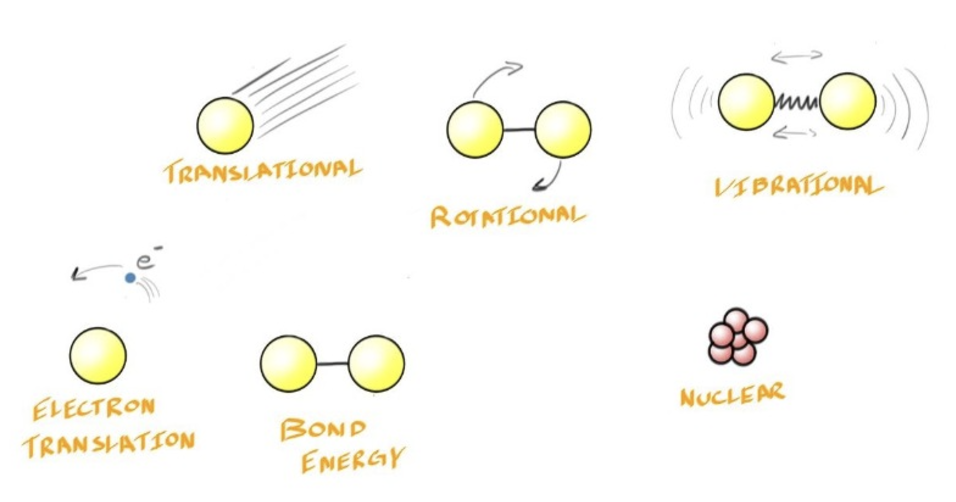 TRANSLATIONAL
ROTATIONAL
VIBRATIONAL
e⁻
ELECTRON
TRANSLATION
BOND
ENERGY
NUCLEAR